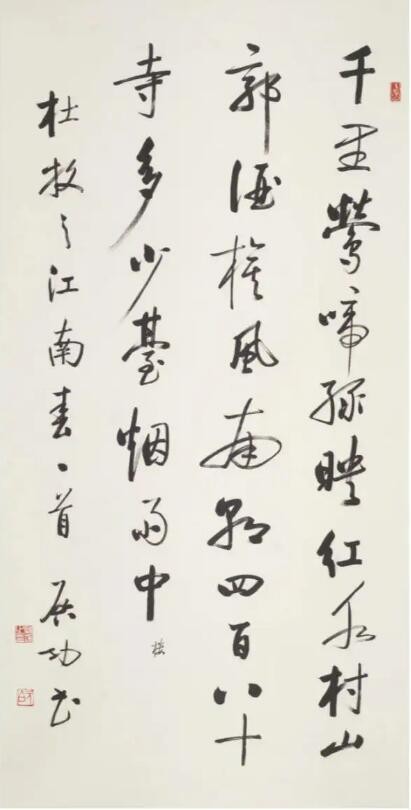 千里鶯啼綠暎紅水村山
郭酒旗風南朝四百八十
寺多少臺烟雨中 樓
杜牧之江南春一首 啓功書